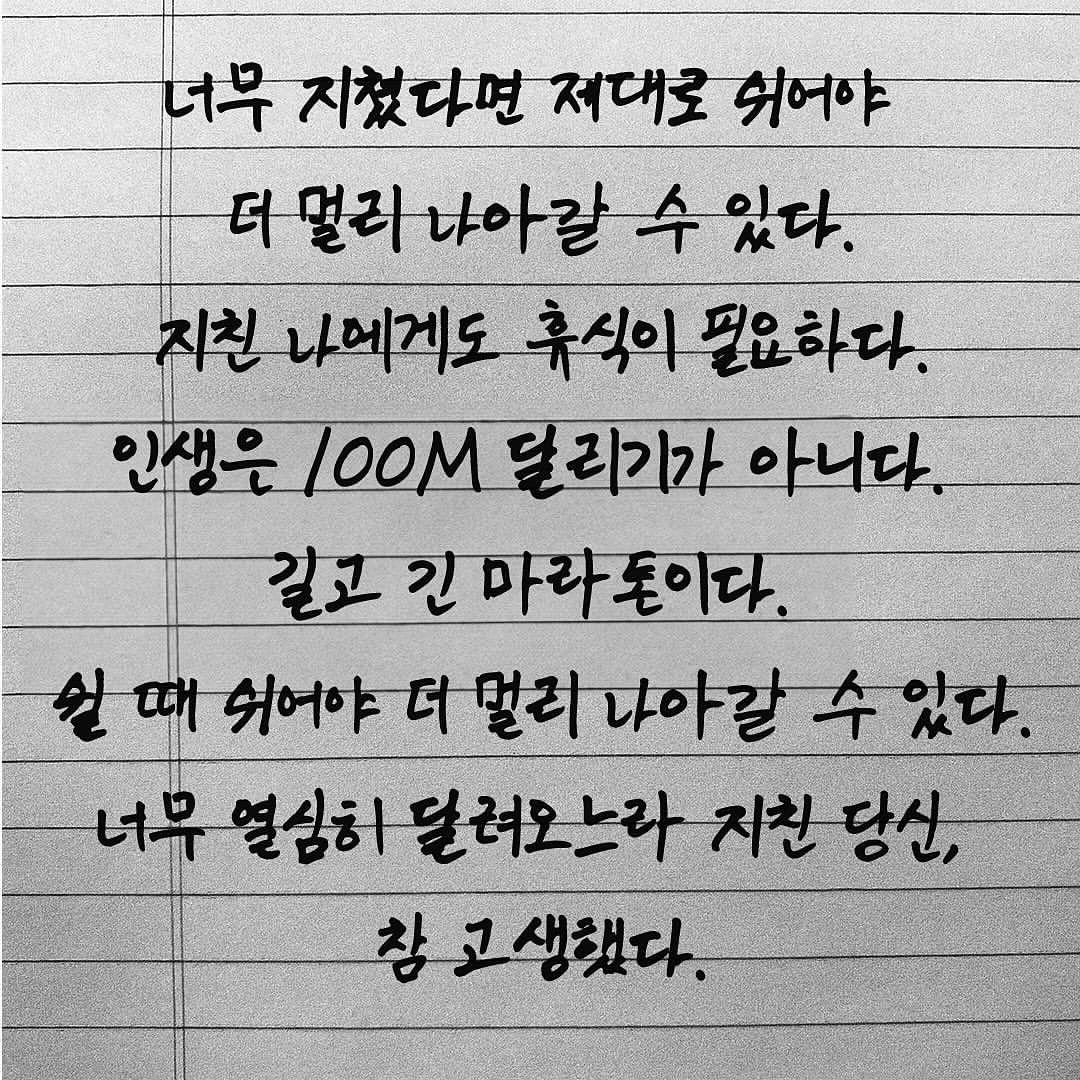 너무 지쳤다면 제대로 쉬어야
더 멀리 나아갈 수 있다.
지친 나에게도 휴식이 필요하다.
인생은 100M 달리기가 아니다.
길고 긴 마라톤이다.
쉴 때 쉬어야 더 멀리 나아갈 수 있다.
너무 열심히 달려오느라 지친 당신,
참 고생했다.